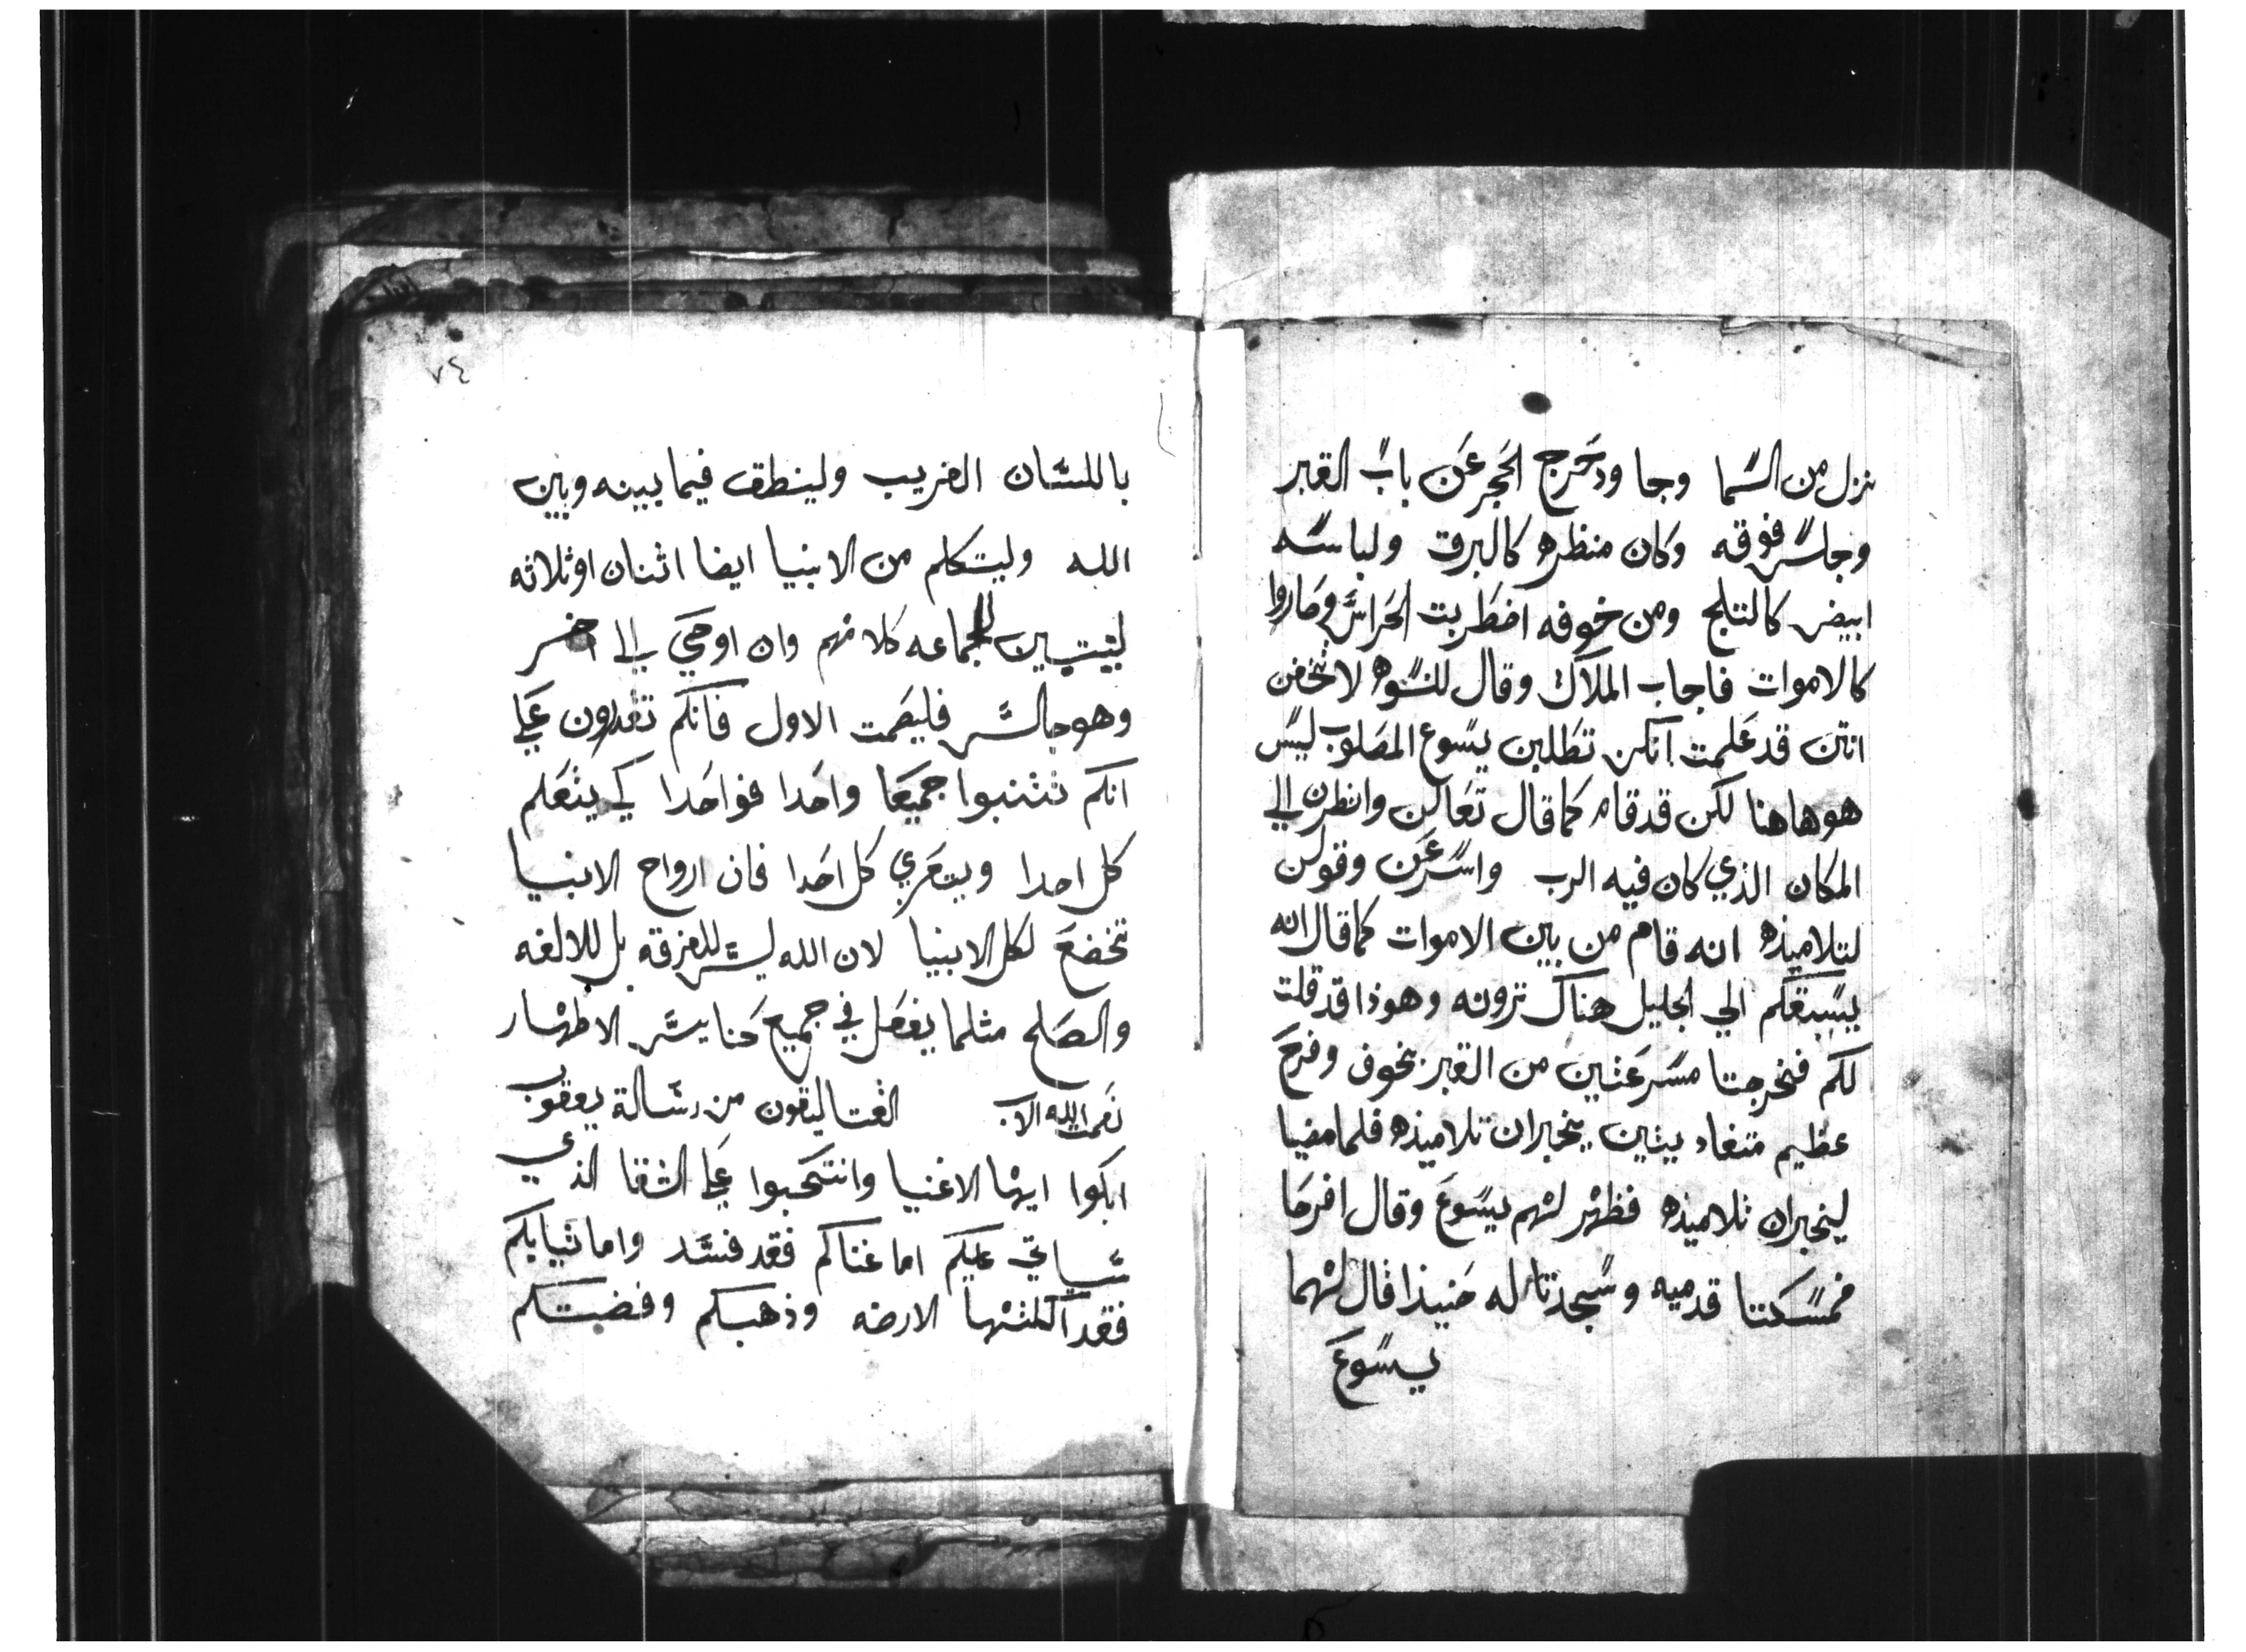 نزل من السما وجا ودحرج الحجر عن باب القبر
وجلس فوقه وكان منظره كالبرق ولباسه
ابيض كالتلج ومن خوفه اضطربت الحراس وصاروا
كالاموات فاجاب الملاك وقال للنسوه لا تخفن
انتن قد علمت انكن تطلبن يسوع المصلوب ليس
هو هاهنا لكن قد قام كما قال تعالن وانظرن الي
المكان الذي كان فيه الرب واسرعن وقولن
لتلاميذه انه قام من بين الاموات كما قال انه
يسبقكم الي الجليل هناك ترونه وهوذا قد قلت
لكم فخرجتا مسرعتين من القبر بخوف وفرح
عظيم متعاديتين يخبران تلاميذه فلما مضيا
ليخبران تلاميذه فظهر لهم يسوع وقال افرحا
فمسكتا قدميه وسجدتا له حنيذا قال لهما
يسوع
٧٤
باللسان الغريب ولينطق فيما بينه وبين
الله وليتكلم من الانبيا ايضا اثنان او ثلاثه
ليتبين للجماعه كلامهم وان اوحي الي اخر
وهو جالس فليصمت الاول فانكم تقدرون علي
انكم تتنبوا جميعا واحدا فواحدا كي يتعلم
كل احدا ويتعري كل احدا فان ارواح الانبيا
تخضع لكل الانبيا لان الله ليس للفرقه بل للالفه
والصلح مثلما يفعل في جميع كنايس الاطهار
نعمت الله الاب القتاليقون من رسالة يعقوب
ابكوا ايها الاغنيا وانتحبوا علي الشقا الذي
سياتي عليكم اما غناكم فقد فسد واما ثيابكم
فقد اكلتها الارضه وذهبكم وفضتكم